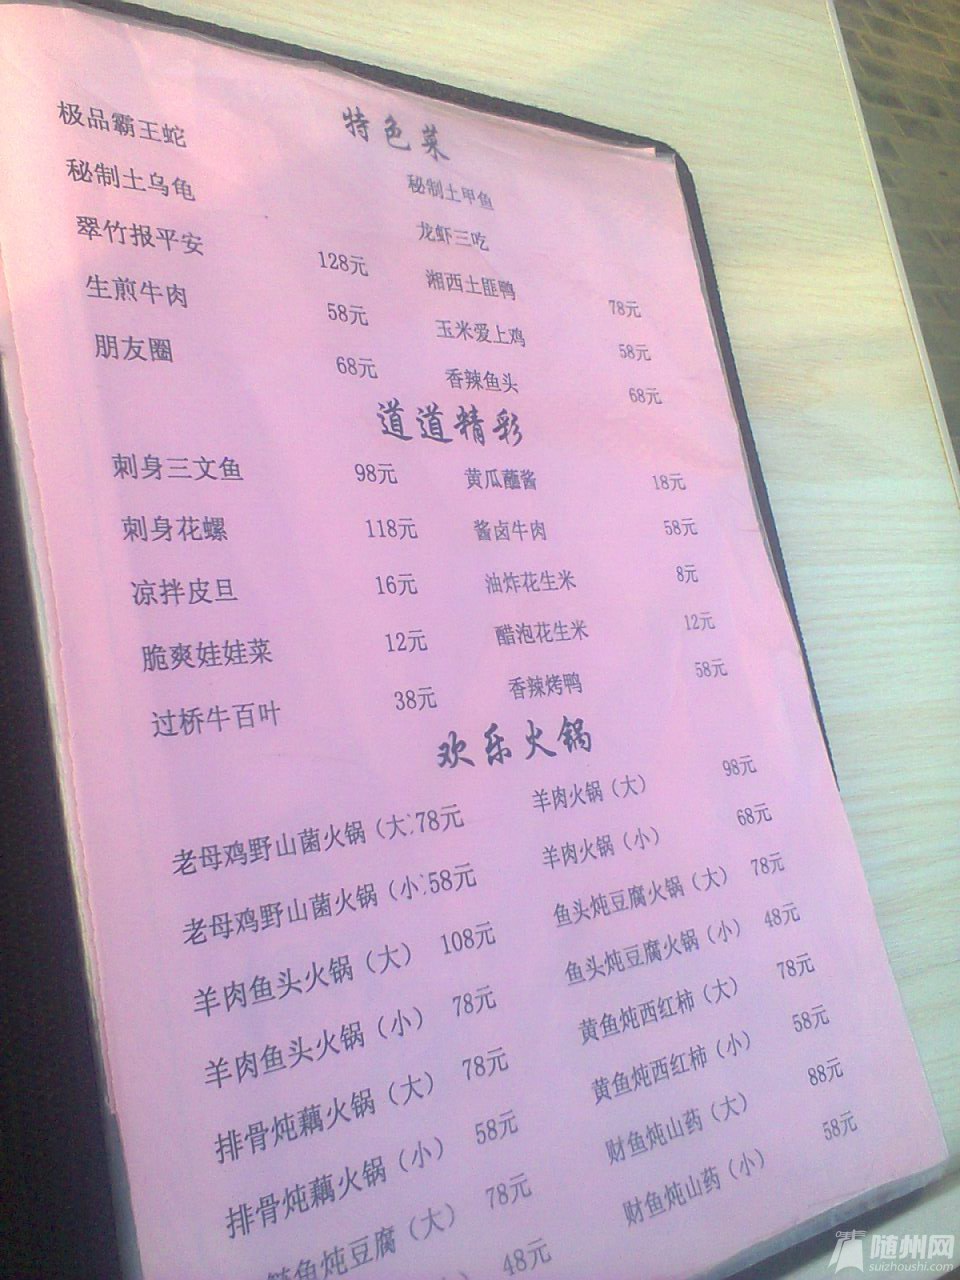 特色菜
极品霸王蛇 秘制土甲鱼
秘制土乌龟 龙虾三吃
翠竹报平安 128元 湘西土匪鸭 78元
生煎牛肉 58元 玉米爱上鸡 58元
朋友圈 68元 香辣鱼头 68元
道道精彩
刺身三文鱼 98元 黄瓜蘸酱 18元
刺身花螺 118元 酱卤牛肉 58元
凉拌皮旦 16元 油炸花生米 8元
脆爽娃娃菜 12元 醋泡花生米 12元
过桥牛百叶 38元 香辣烤鸭 58元
欢乐火锅
老母鸡野山菌火锅（大） 78元 羊肉火锅（大） 98元
老母鸡野山菌火锅（小） 58元 羊肉火锅（小） 68元
羊肉鱼头火锅（大） 108元 鱼头炖豆腐火锅（大） 78元
羊肉鱼头火锅（小） 78元 鱼头炖豆腐火锅（小） 48元
排骨炖藕火锅（大） 78元 黄鱼炖西红柿（大） 78元
排骨炖藕火锅（小） 58元 黄鱼炖西红柿（小） 58元
鱼炖豆腐（大） 78元 财鱼炖山药（大） 88元
48元 财鱼炖山药（小） 58元
随州网
suizhoushi.com